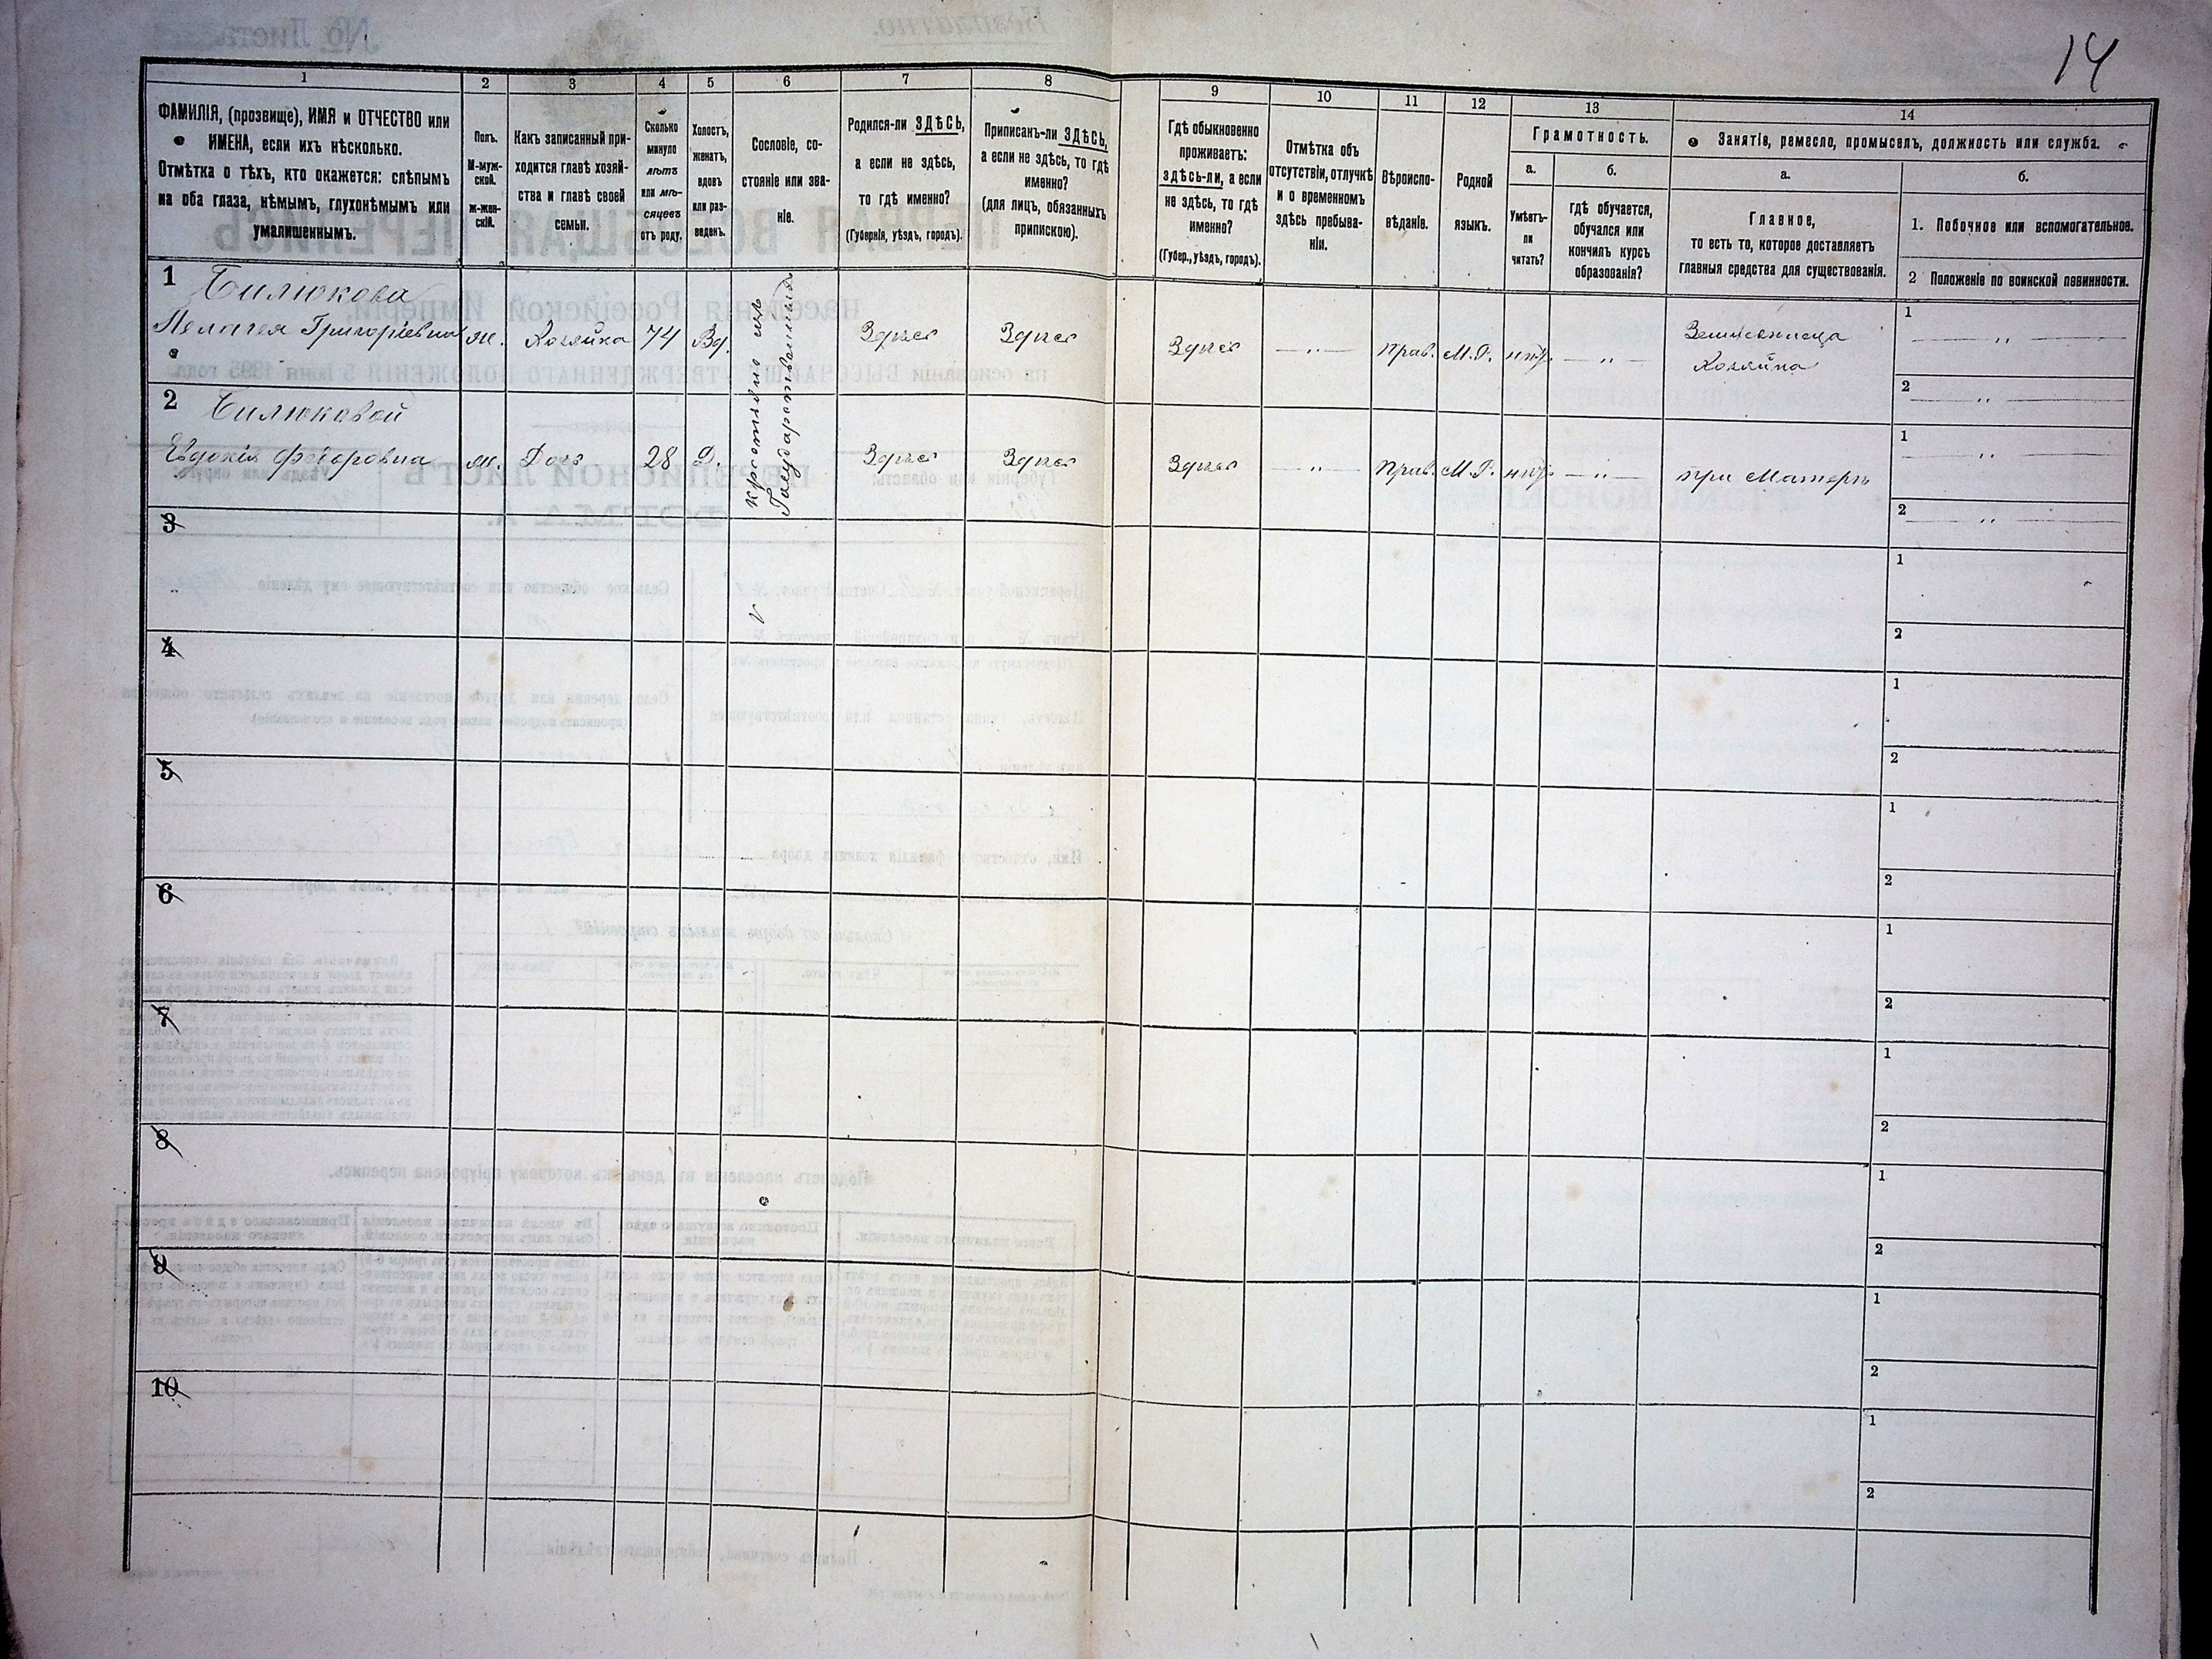 14
1
2
3
4
5
6
7
8
9
10
11
12
13
14
ФАМИЛІЯ, (прозвище), ИМЯ и ОТЧЕСТВО или
ИМЕНА, если ихъ нѣсколько.
Отмѣтка о тѣхъ, кто окажется: слѣпымъ
на оба глаза, нѣмымъ, глухонѣмымъ или
умалишеннымъ.
Полъ.
М-муж-
ской.
ж-жен-
скій.
Какъ записанный при-
ходится главѣ хозяй-
ства и главѣ своей
семьи.
Сколько
минуло
лѣтъ
или мѣ-
сяцевъ
отъ роду.
Холостъ,
женатъ,
вдовъ
или раз-
веденъ.
Сословіе, со-
стояніе или зва-
ніе.
Родился-ли ЗДѢСЬ,
а если не здѣсь,
то гдѣ именно?
(Губернія, уѣздъ, городъ).
Приписанъ-ли ЗДѢСЬ,
а если не здѣсь, то гдѣ
именно?
(для лицъ, обязанныхъ
припискою).
Гдѣ обыкновенно
проживаетъ:
здѣсь-ли, а если
не здѣсь, то гдѣ
именно?
(Губер., уѣздъ, городъ).
Отмѣтка объ
отсутствіи, отлучкѣ
и о временномъ
здѣсь пребыва-
ніи.
Вѣроиспо-
вѣданіе.
Родной
языкъ.
Грамотность.
а.
Умѣетъ-
ли
читать?
б.
гдѣ обучается,
обучался или
кончилъ курсъ
образованія?
Занятіе, ремесло, промыселъ, должность или служба.
а.
Главное,
то есть то, которое доставляетъ
главныя средства для существованія.
б.
1. Побочное или вспомогательное.
2 Положеніе по воинской повинности.
1 Билюкова
Пелагея Григорьевна ж. Хозяйка 74 Вд. Здѣсь Здѣсь Здѣсь — " — Прав. М.Р. нѣтъ — " —
Хозяйка
1 — " —
2 — " —
крестьяне изъ
Государственныхъ
2 Билюковой
Евдокія Федоровна ж. Дочь 28 Д. Здѣсь Здѣсь Здѣсь — " — Прав. М.Р. нѣтъ — " — при Матери
1 — " —
2 — " —
3
1
2
4
1
2
5
1
2
6
1
2
7
1
2
8
1
2
9
1
2
10
1
2